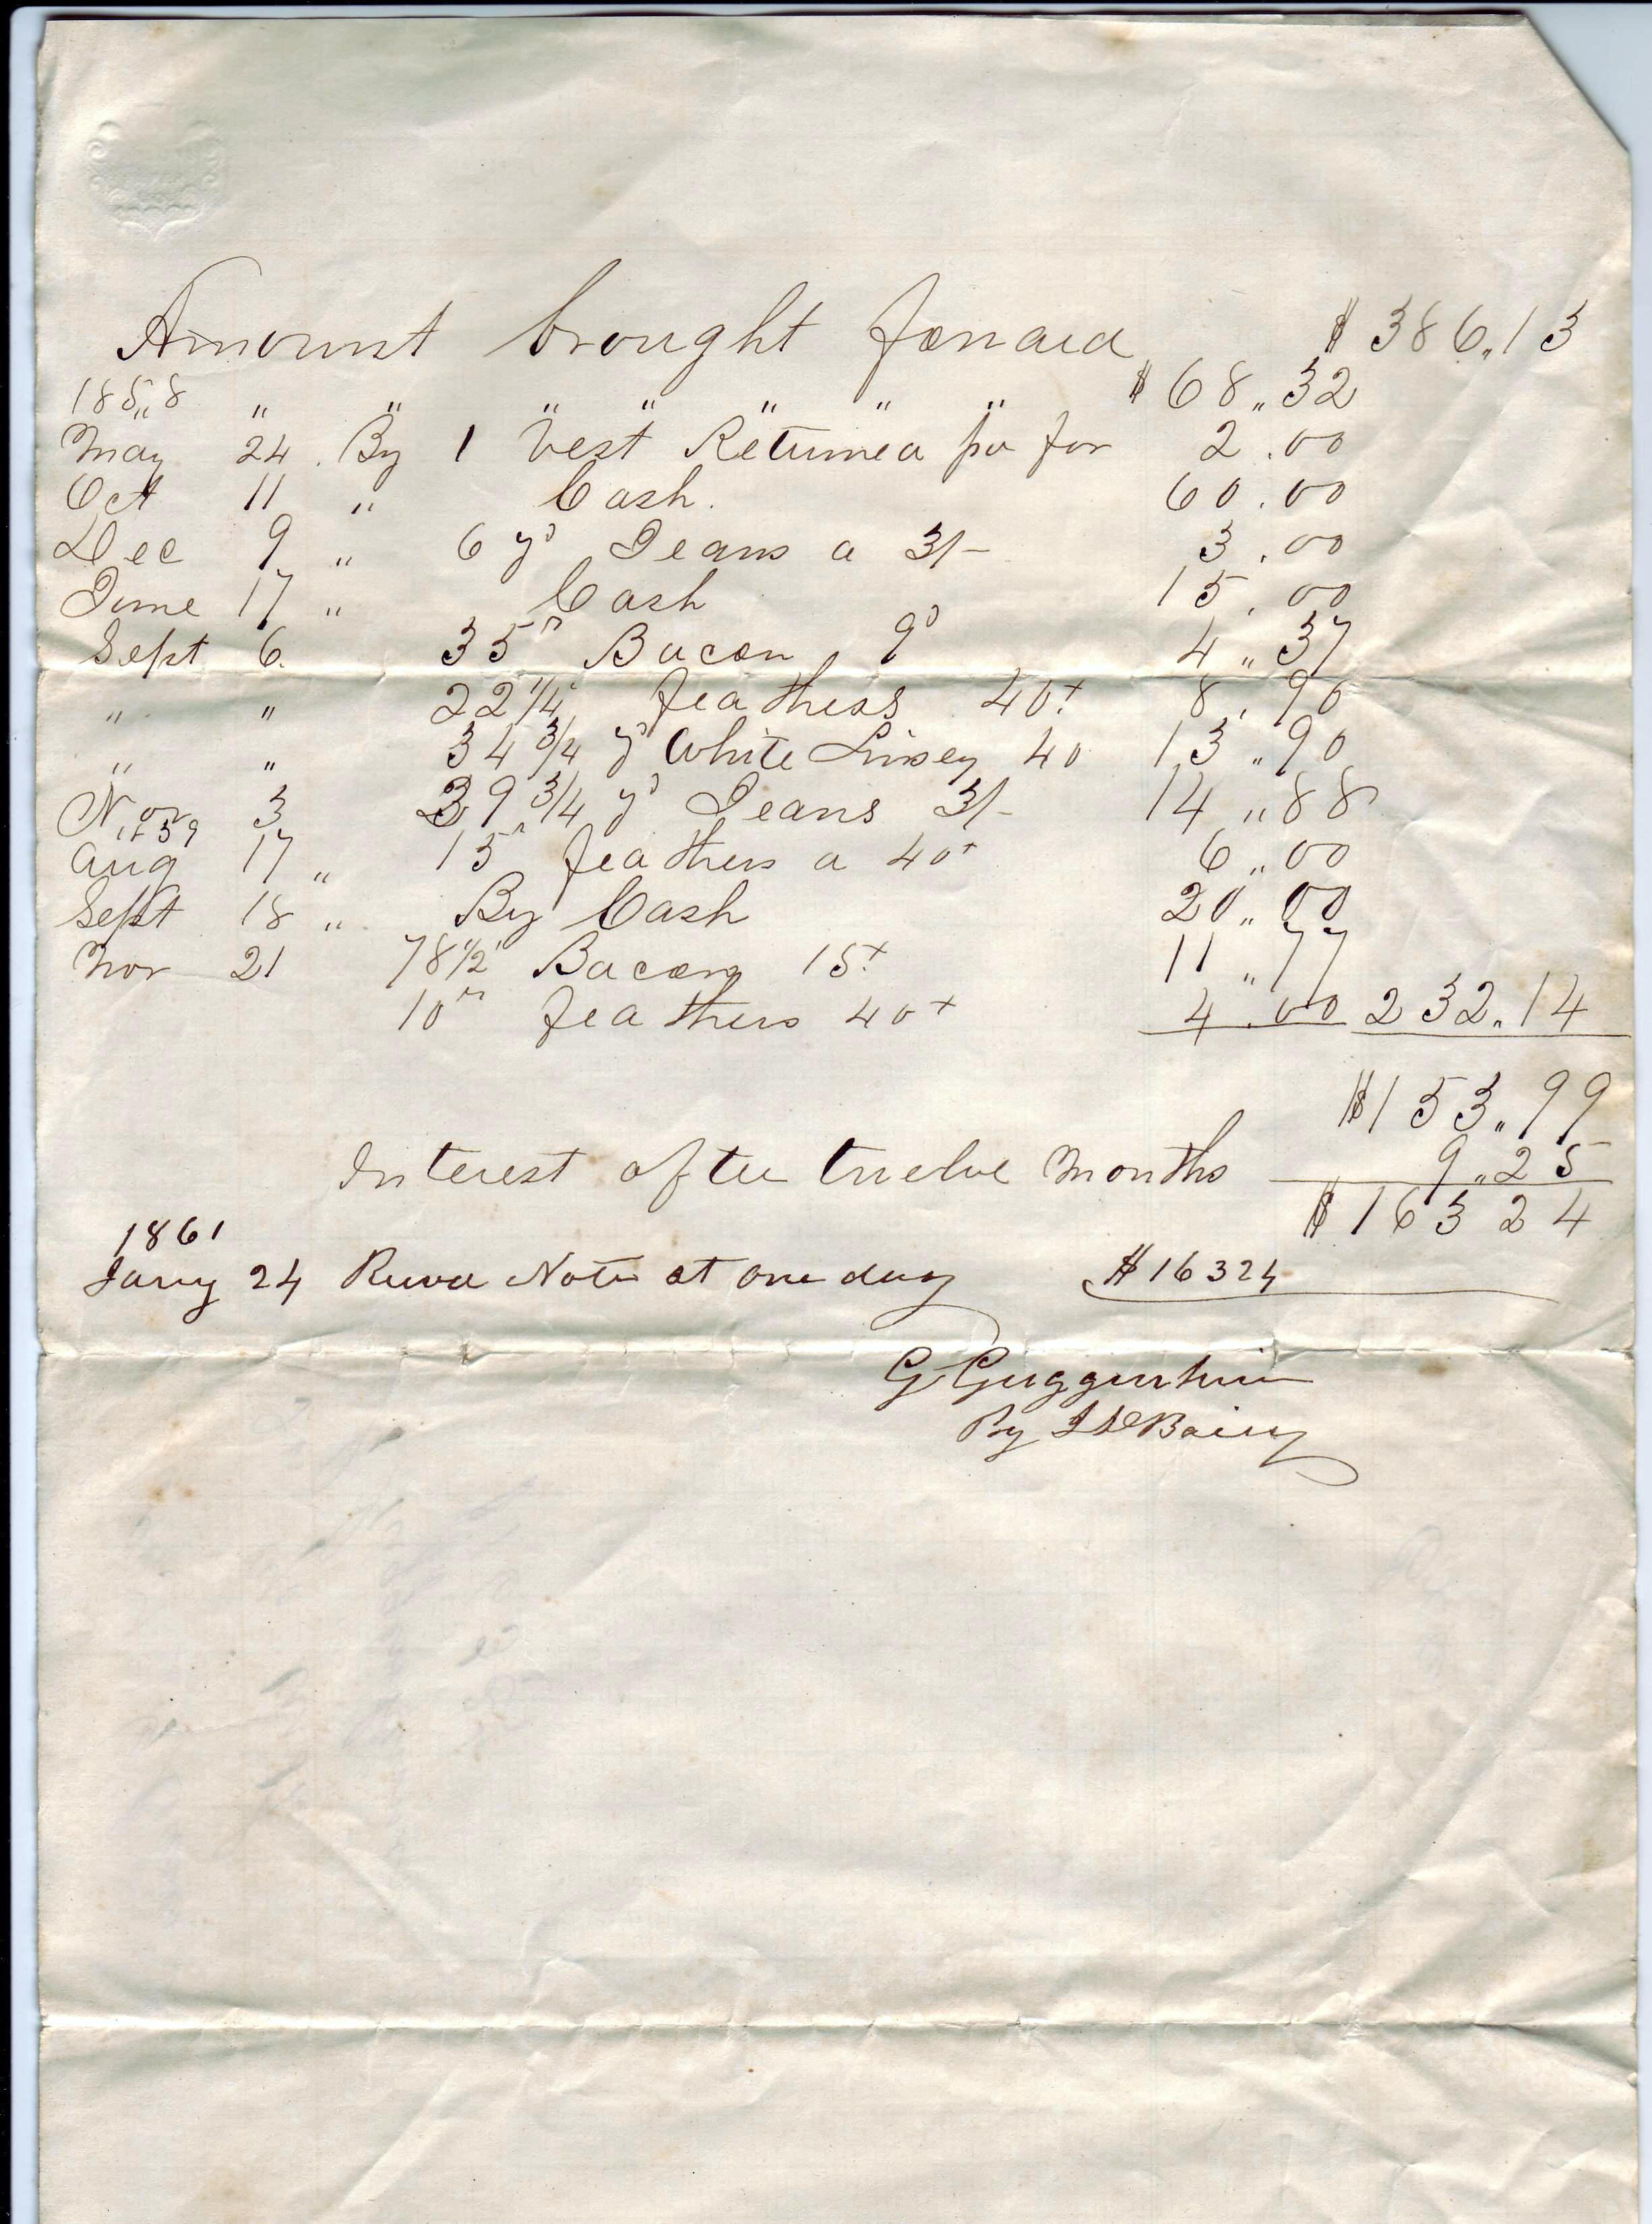 Amount brought forward $386.13
1858 " " " " " " " $68.32
May 24. By 1 Vest Returned pr for 2.00
Oct 11 " Cash. 60.00
Dec 9 " 6 yd Jeans a 3/- 3.00
June 17 " Cash 15.00
Sept 6. 35 Bacon 9d 4.37
" " 22 1/4 feathers 40 8.90
" " 34 3/4 yd White Linsey 40 13.90
Nov 3 39 3/4 yd Jeans 3/- 14.88
1859
Aug 17 " 15 feathers a 40 6.00
Sept 18 " By Cash 20.00
Nov 21 78 1/2 Bacon 15 11.77
10 feathers 40 4.00 232.14
$153.99
Interest after twelve Months 9.25
$163 24
1861
Jany 24 Recvd Note at one day $163 24
G Guggenheim
By